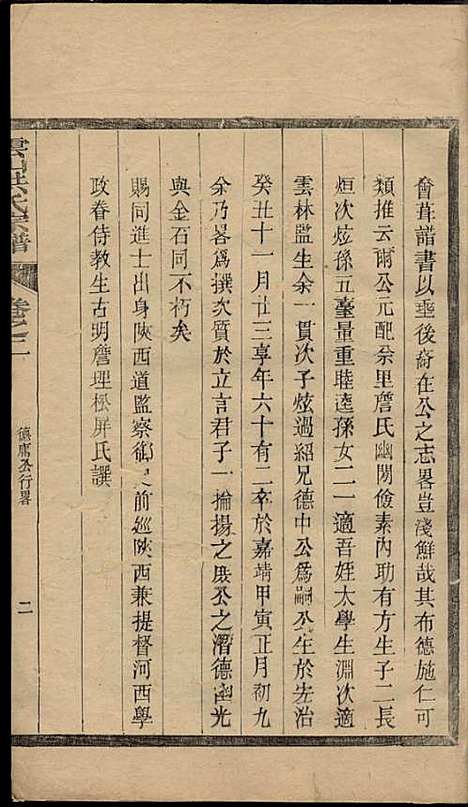 會葺譜書以垂後裔在公之志畧豈淺鮮哉其布德施仁可
類推云爾公元配佘里詹氏幽閒儉素內助有方生子二長
烜次炫孫五臺量重睦逵孫女二一適吾姪太學生淵次適
雲林監生余一貫次子炫過紹兄德中公為嗣公生於宏治
癸丑十一月廿三享年六十有二卒於嘉靖甲寅正月初九
余乃畧為撰次質於立言君子一掄揚之俾公之潛德幽光
與金石同不朽矣
賜同進士出身陝西道監察御史前巡陝西兼提督河西學
政眷侍教生古明詹理松屏氏譔
雲邱洪氏宗譜
卷之一
德庸公行畧
二